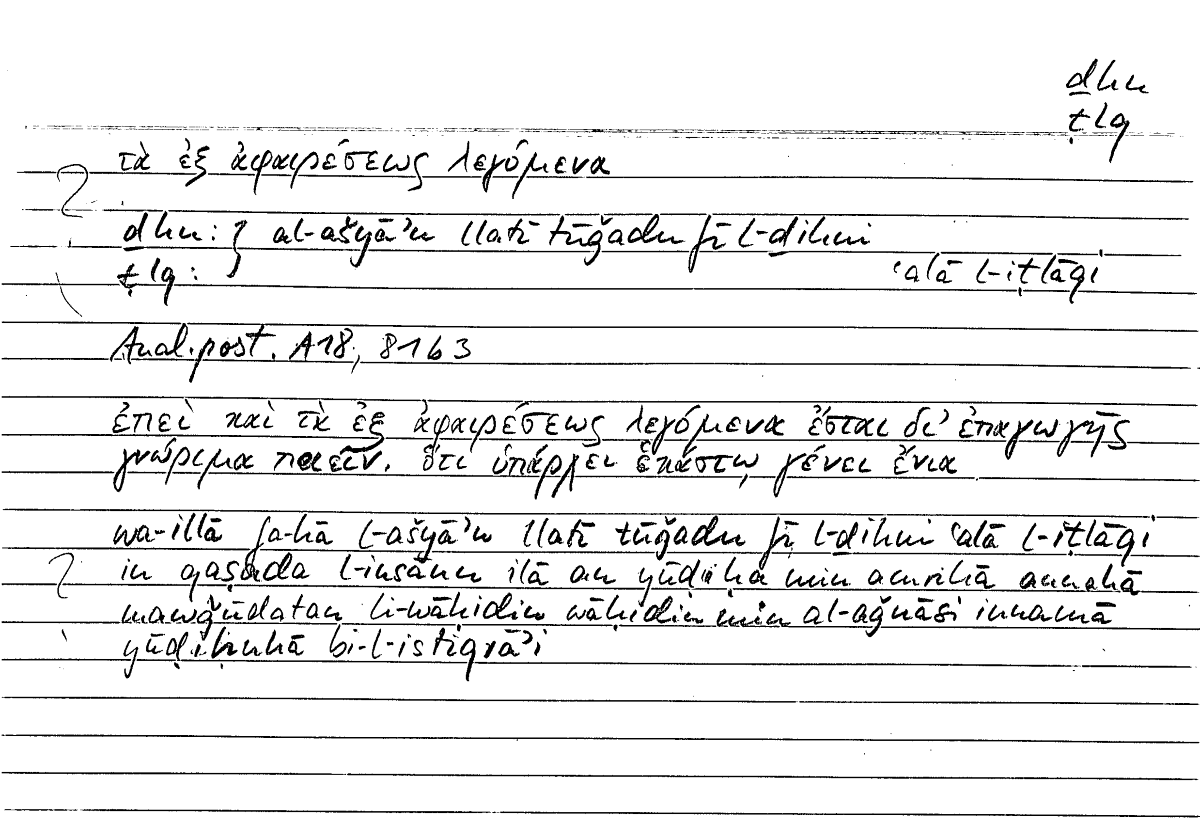 ḏhn
ṭlq
τὰ ἐξ ἀφαιρέσεως λεγόμενα
ḏhn: } al-ašyāʾu llatī tūǧadu fī l-ḏihni
ṭlq: ʿalā l-iṭlāqi
Anal. post. A18, 81b3
ἐπεὶ καὶ τὰ ἐξ ἀφαιρέσεως λεγόμενα ἔσται δι' ἐπαγωγῆς
γνώριμα ποιεῖν, ὅτι ὑπάρχει ἑκάστῳ γένει ἔνια
wa-illā fa-hā l-ašyāʾu llatī tūǧadu fī l-ḏihni ʿalā l-iṭlāqi
in qaṣada l-insānu ilā an yūḍiḥa min amrihā annahā
mawǧūdatan li-wāḥidin wāḥidin min al-aǧnāsi innamā
yūḍiḥuhā bi-l-istiqrāʾi